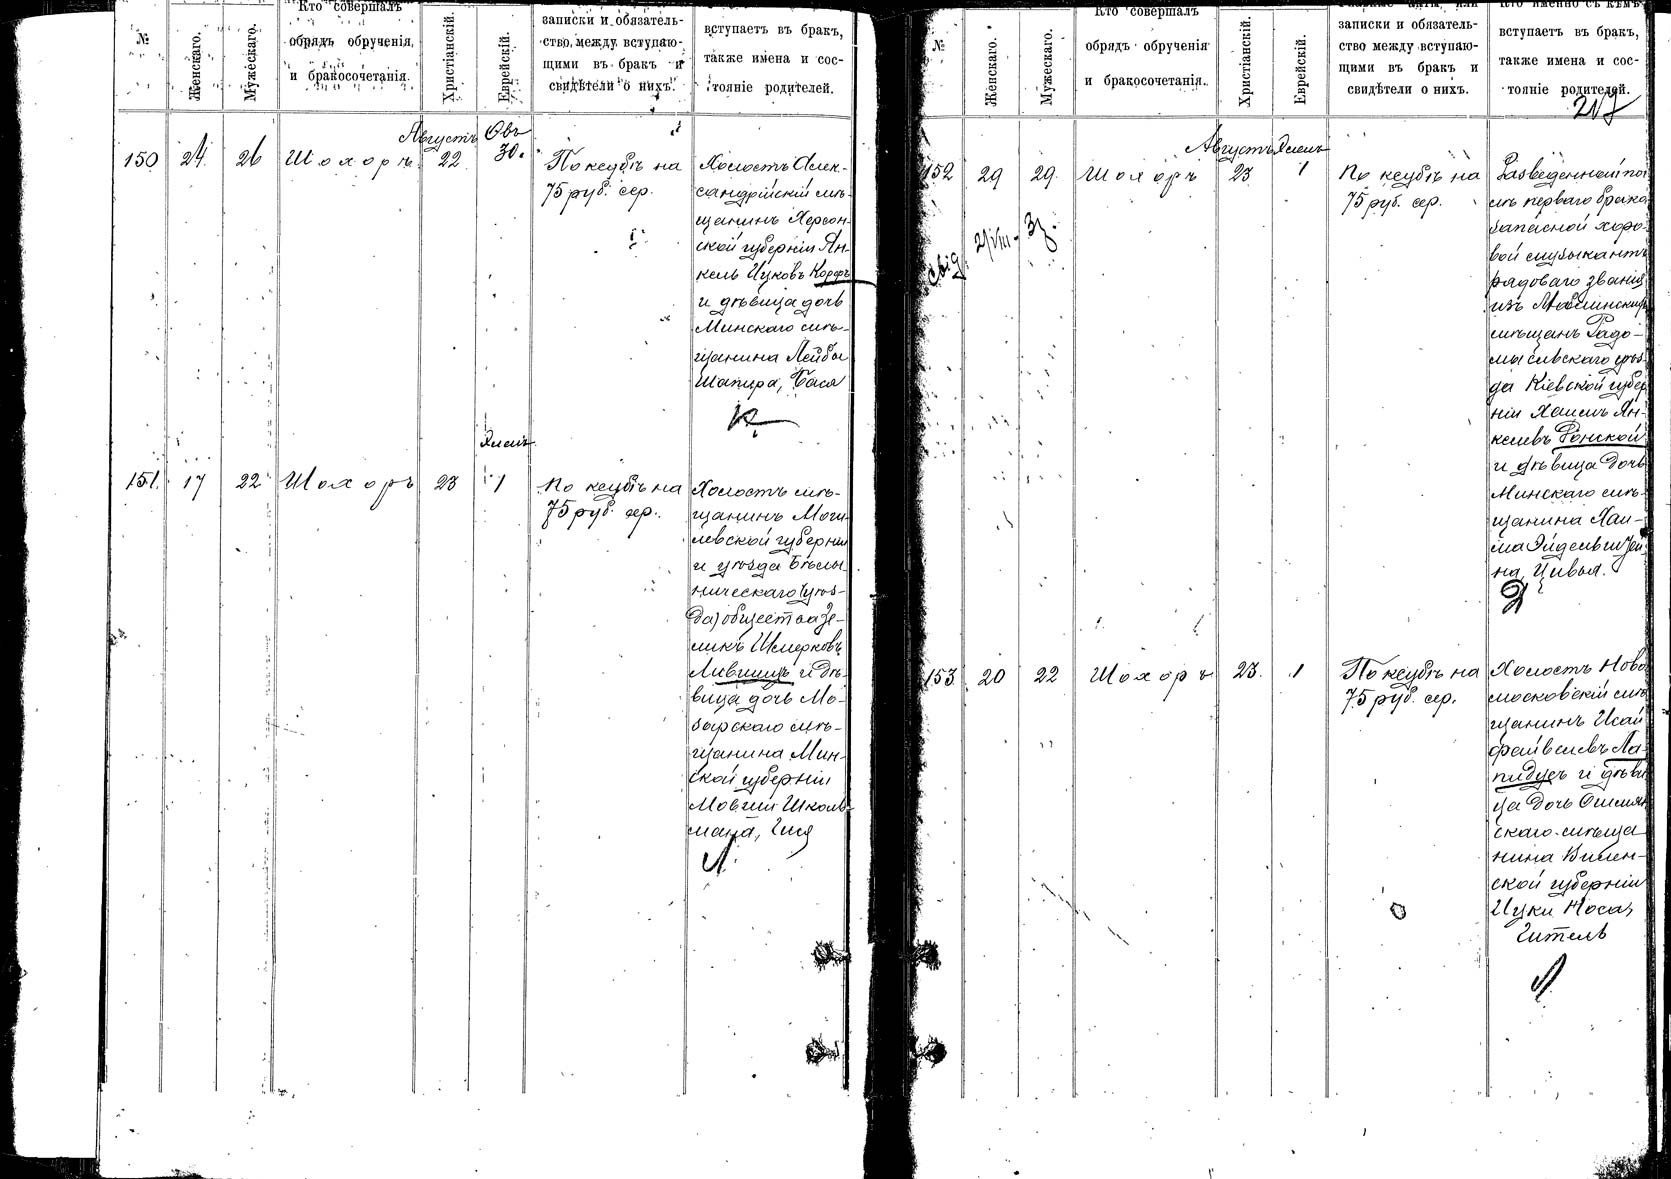 №
Женскаго.
Мужескаго.
Кто совершалъ
обрядъ обрученія
и бракосочетанія.
Христіанскій.
Еврейскій.
записки и обязатель-
ство между вступаю-
щими въ бракъ и
свидѣтели о нихъ.
вступаетъ въ бракъ,
также имена и сос-
тояніе родителей.
Августъ Овъ
150 24 26 Шохоръ 22 30.
По ксубѣ на
75 руб. сер.
Холостъ Алек-
сандрійскій мѣ-
щанинъ Херсон-
ской губерніи Ян-
кель Ицковъ Корфъ
и дѣвица дочь
Минскаго мѣ-
щанина Лейбы
Шапира, Бася
К
Элелъ
151 17 22 Шохоръ 23 1
По ксубѣ на
75 руб. сер.
Холостъ мѣ-
щанинъ Моги-
левской губерніи
и уѣзда Бѣлы-
ническаго (уѣз-
да) общества Зе-
ликъ Шмерковъ
Лившицъ и дѣ-
вица дочь Мо-
зырскаго мѣ-
щанина Мин-
ской губерніи
Мовши Школь-
мана,
Л.
№
Женскаго.
Мужескаго.
Кто совершалъ
обрядъ обрученія
и бракосочетанія.
Христіанскій.
Еврейскій.
записки и обязатель-
ство между вступаю-
щими въ бракъ и
свидѣтели о нихъ.
Кто именно съ кѣмъ
вступаетъ въ бракъ,
также имена и сос-
тояніе родителей.
217
Августъ Элелъ
152 29 29 Шохоръ 23 1
По ксубѣ на
75 руб. сер.
Разведенный по
перваго брака
запасной хоро-
вой музыкантъ
рядоваго званія
изъ
мѣщанъ Радо-
мысльскаго уѣз-
да Кіевской губер
ніи Хаимъ Ян-
келевъ Ронской
и дѣвица дочь
Минскаго мѣ-
щанина Хаи-
ма
на, Цивья.
153 20 22 Шохоръ 23 1
По ксубѣ на
75 руб. сер.
Холостъ Ново
московскій мѣ
щанинъ Исай
Файвелевъ Ла-
пидусъ и дѣви
ца дочь Ошмян
скаго мѣща
нина Вилен-
ской губерніи
Ицки Носа,
Гитель
Л